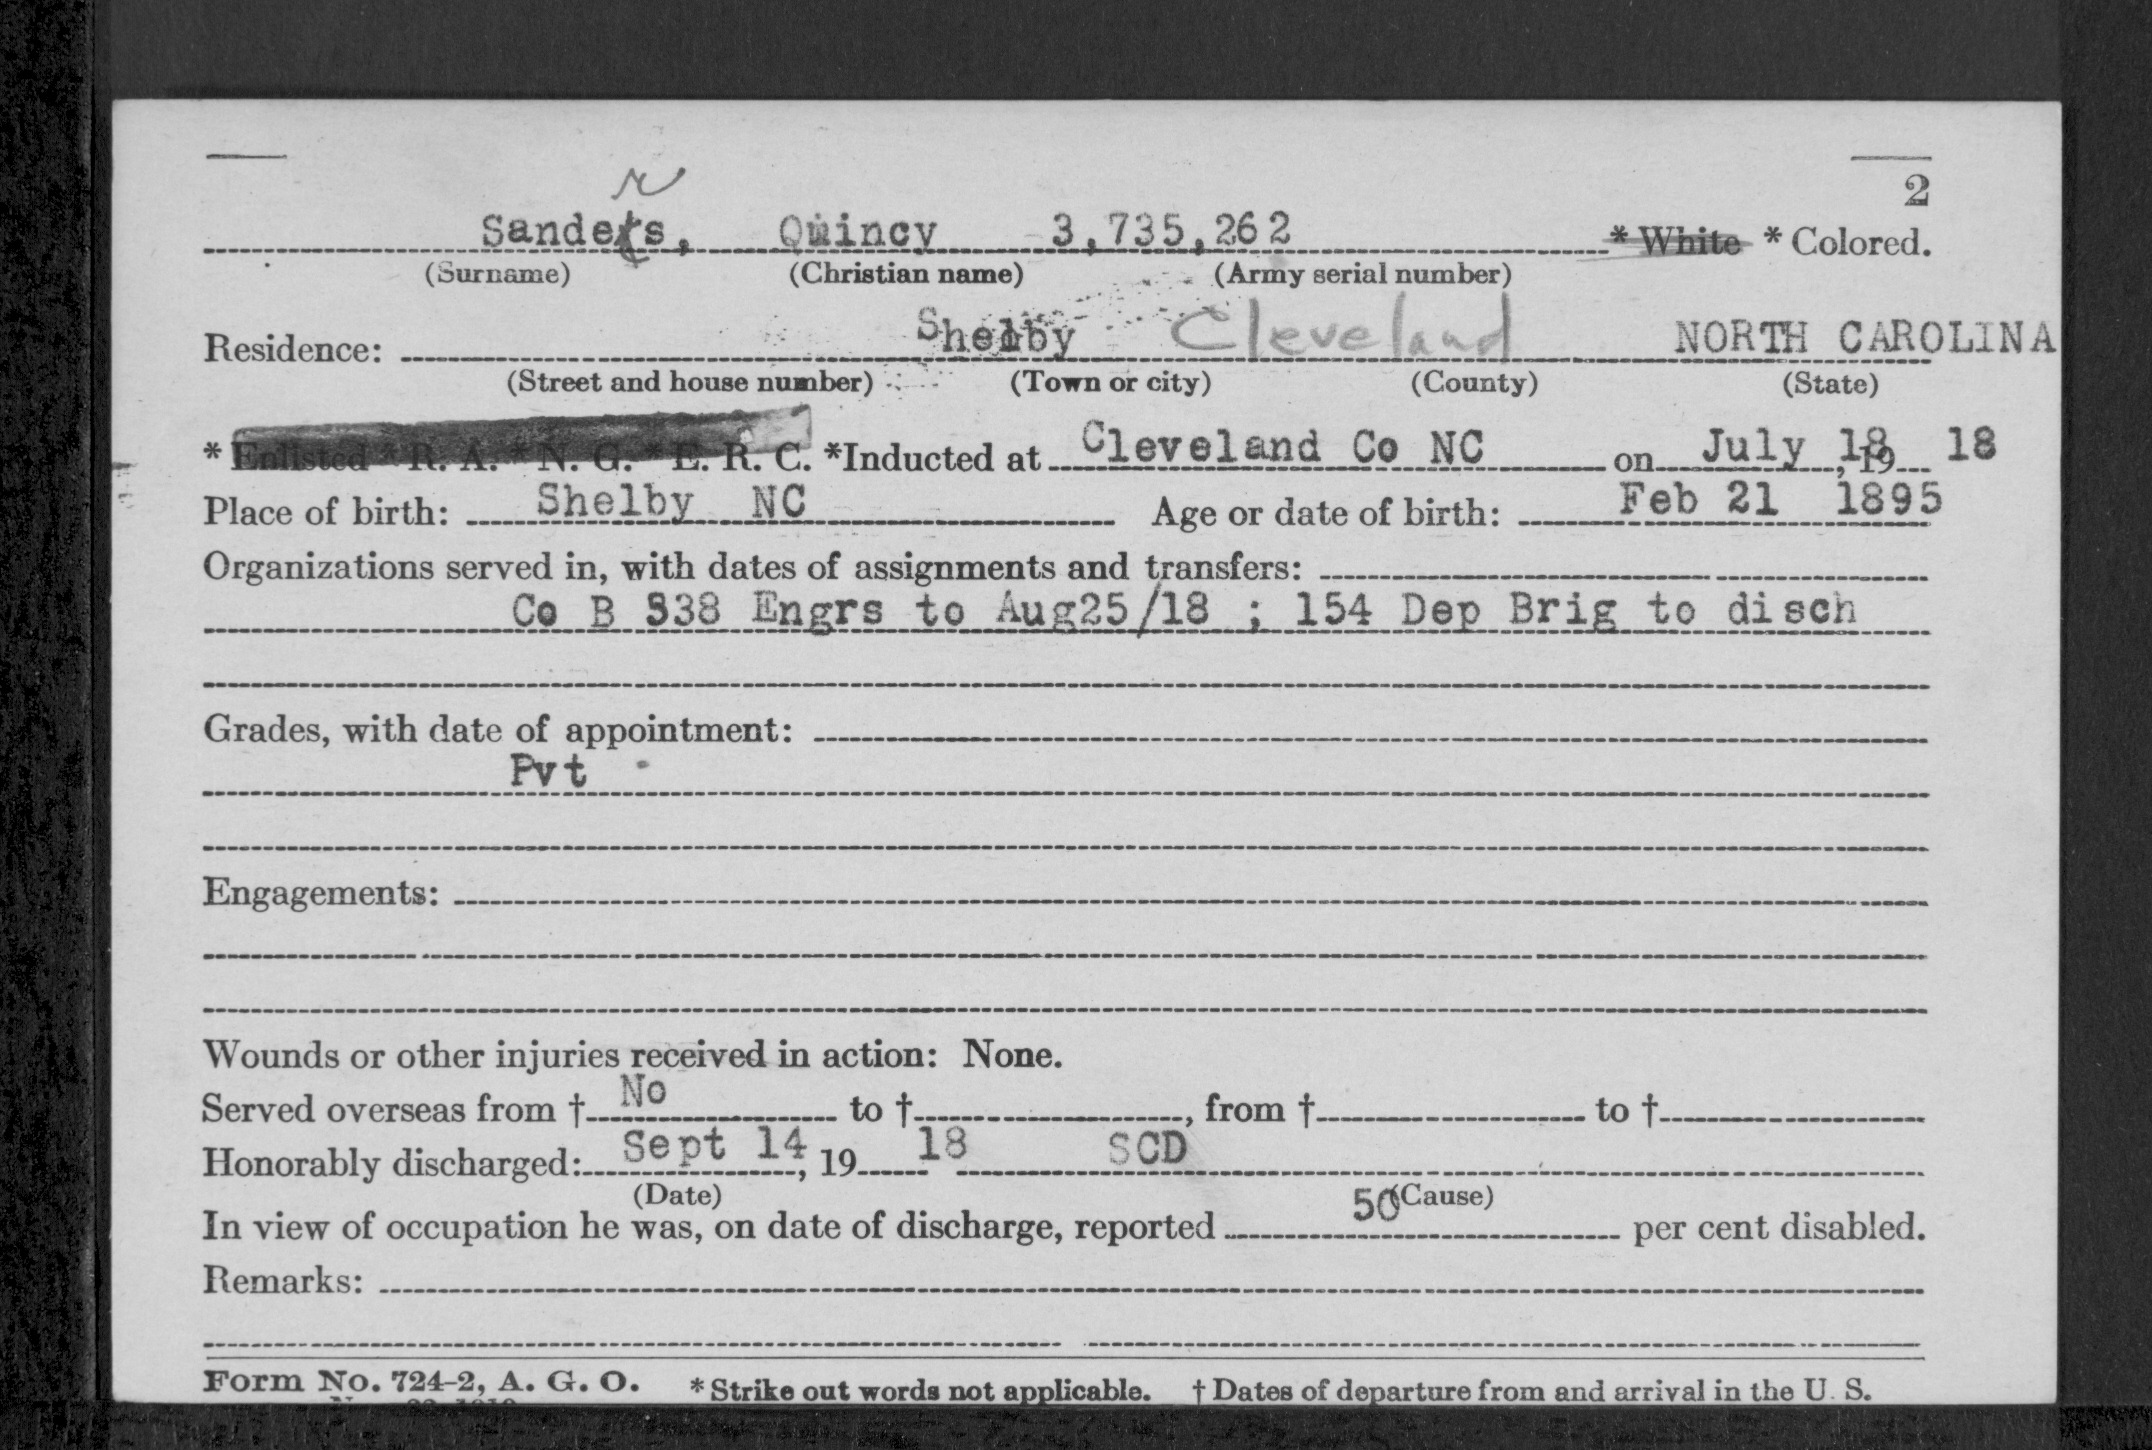 2
r
Sanders, Quincy 3,735,262 * White * Colored.
(Surname) (Christian name) (Army serial number)
Residence: Shelby Cleveland NORTH CAROLINA
(Street and house number) (Town or city) (County) (State)
* Enlisted * R. A. * N. G. * E. R. C. *Inducted at Cleveland Co NC on July 18, 19 18
Place of birth: Shelby NC Age or date of birth: Feb 21 1895
Organizations served in, with dates of assignments and transfers:
Co B 538 Engrs to Aug25/18 ; 154 Dep Brig to disch
Grades, with date of appointment:
Pvt
Engagements:
Wounds or other injuries received in action: None.
Served overseas from † No to †, from † to †
Honorably discharged: Sept 14, 19 18 SCD
(Date) (Cause)
In view of occupation he was, on date of discharge, reported 50 per cent disabled.
Remarks:
Form No. 724-2, A. G. O. * Strike out words not applicable. † Dates of departure from and arrival in the U. S.